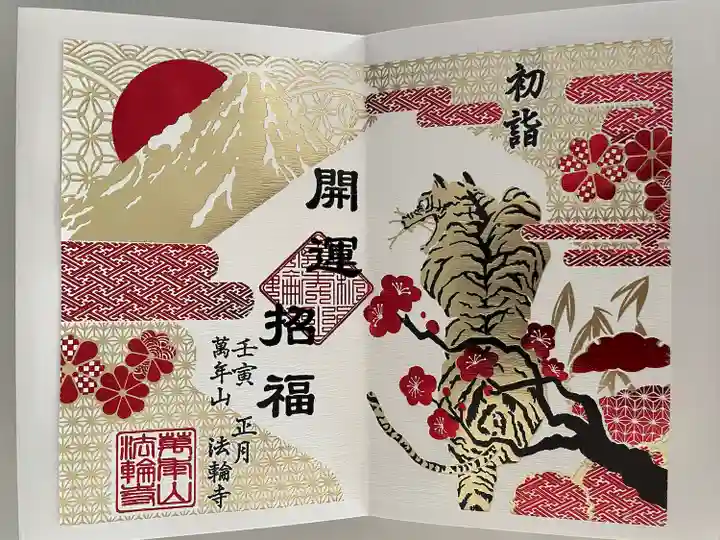 初詣
開運招福
壬寅 正月
萬年山 法輪寺
萬年山
法輪寺